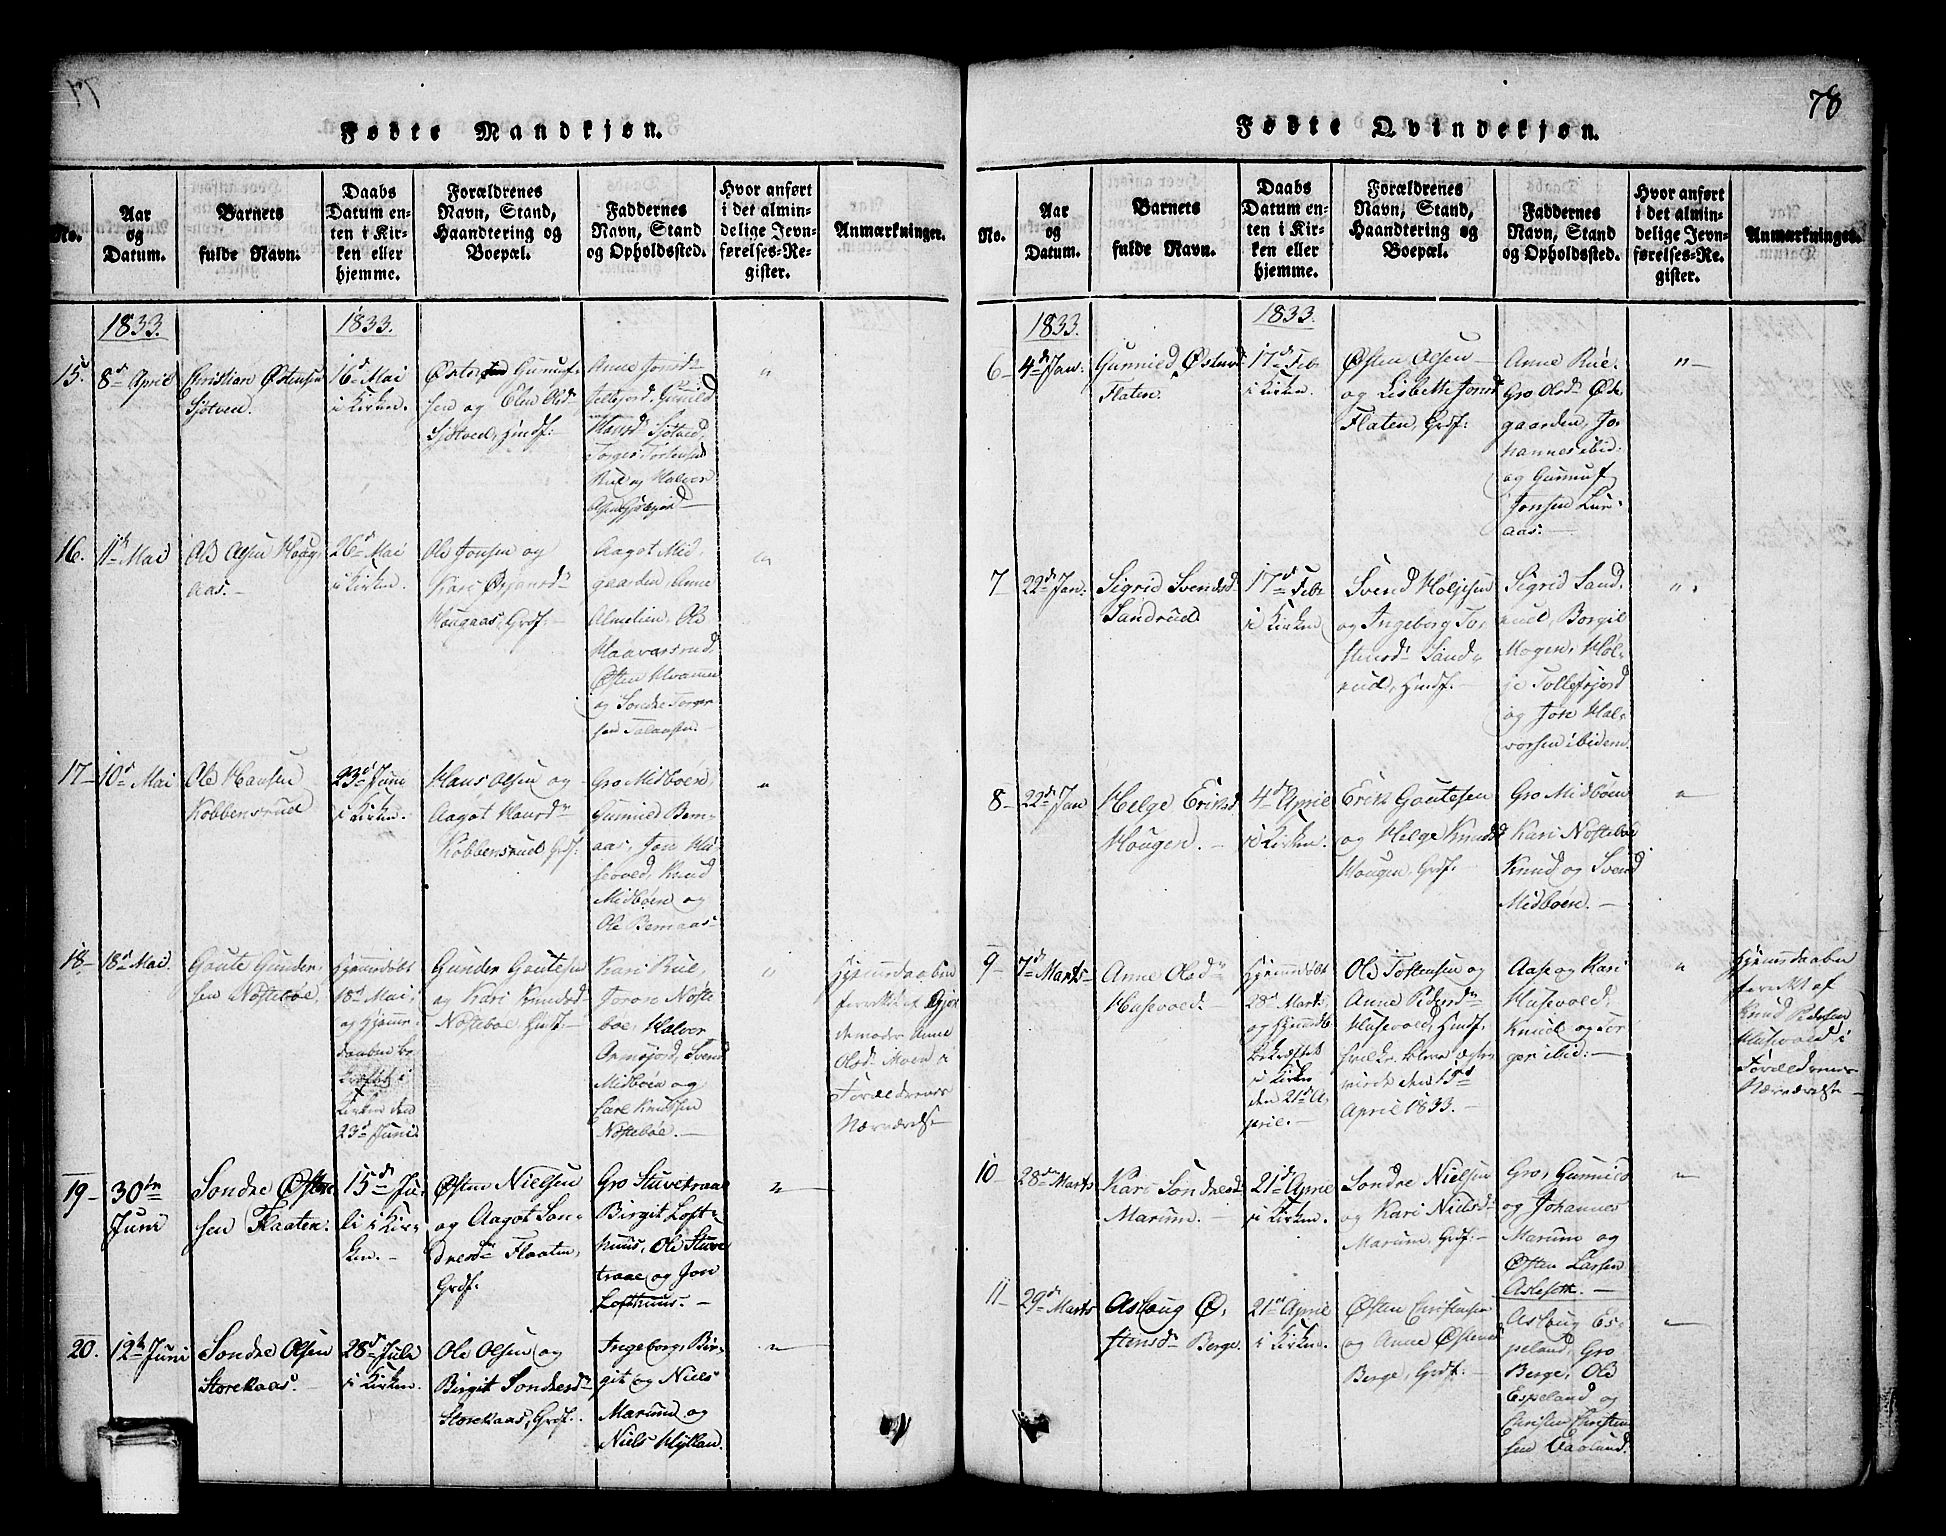 77
Fødte Mandkjøn.
No.
Aar
og
Datum.
Barnets
fulde Navn.
Daabs
Datum en-
ten i Kir-
ken eller
hjemme.
Forældrenes
Navn, Stand,
Haandtering og
Boepæl.
Faddernes
Navn, Stand
og Opholdssted.
Hvor anført
i det almin-
delige Jevn-
førelses-Re-
gister.
Anmærkninger.
1833.
1833.
15.
8de April
Christian Østensen
Sjøtved.
16de Mai
i Kirken.
Østen Gunuf-
sen og Elen Olsd:
Sjøtved, Hindf:
Anne Jonsd:
Hansd: Sjøtved,
Torger Torstensen
Rue og Halvor
"
16.
11te Mai
Ole Olsen Houg-
aas.
26de Mai
i Kirken.
Ole Jonsen og
Kari Ørjansd:
Hougaas, Grdf:
Aagot Mid-
gaarden, Anne
Almelien, Ole
Haavarsrud,
Østen Kvamme
og Sondre Torger-
sen
"
17
10de Mai
Ole Hansen
Kobbensrud
23de Juni
i Kirken.
Hans Olsen og
Aagot Hansd:
Kobbensrud Grdf:
Gro Midbøen,
Gunild Bem-
aas, Jon Hu-
sevold, Knud
Midbøen og
Ole Bemaas
"
18
18de Mai
Goute Gunder-
sen Nøstebøe.
Hjemmedøbt
18de Mai,
og Hjemme-
daaben be-
kræftet i
Kirken den
23de Juni
Gunder Goutesen
og Kari Knudsd:
Nøstebøe, Hindf:
Kari Rue,
Joron Nøste-
bøe, Halvor
Svend
Midbøen og
Carl Knutsen
Nøstebøe.
"
Hjemmedaaben
forrettet af Gjor-
demoder Anne
Olsd: Moen i
Forældrenes
Nærværelse
19
30te
Juni
Sondre Østen-
sen Flaaten.
15de Ju-
li i Kir-
ken.
Østen Nielsen
og Aagot Son-
dresd: Flaaten,
Grdf.
Gro Stuvetraae
Birgit Loft-
huus, Ole Stuve-
traae og Jon
Lofthuus.
"
20.
12te Juni
Sondre Olsen
Storekaas.
28de Juli
i Kirken.
Ole Olsen og
Birgit Sondresd:
Storekaas, Grdf.
Ingeborg, Bir-
git og Niels
Marum og
Niels Hyllan.
"
78
Fødte Qvindekjøn.
No.
Aar
og
Datum.
Barnets
fulde Navn.
Daabs
Datum en-
ten i Kir-
ken eller
hjemme.
Forældrenes
Navn, Stand,
Haandtering og
Boepæl.
Faddernes
Navn, Stand
og Opholdssted.
Hvor anført
i det almin-
delige Jevn-
førelses-Re-
gister.
Anmærkninger.
1833.
1833.
6
4de Jan:
Gunnild Østensd:
Flaten.
17de Feb:
i Kirken.
Østen Olsen
og Lisbeth Jonsd:
Flaten, Grdf:
Anne Rue,
Gro Olsd: Øste-
gaarden, Jo-
hannes ibid:
og Gunnuf
Jonsen Lur-
aas.
"
7
22de Jan:
Sigrid Svendsd:
Sandrud
17de Feb:
i Kirken
Svend Høljesen
og Ingeborg Tor-
stensd: Sand-
rud, Hindf.
Sigrid Sand-
rud, Borgil
Mogen, Høl-
je Tollefsjord
og Jon Hal-
vorsen ibidem
"
8
22de Jan
Helge Eriksd:
Hougen.
4de April
i Kirken.
Erik Goutesen
og Helge Knudsd:
Hougen, Grdf.
Gro Midbøen
Kari Nøstebøe
Knud og Svend
Midbøen.
"
9
7de Marts
Anne Olsd:
Husevold.
Hjemmedøbt
28de Marts
og Hjemmedb:
bekræftet
i Kirken
den 21de A-
pril.
Ole Tostensen og
Anne Pedersd:
Husevold, Hindf.
hvilke bleve ægte-
viede den 15de
April 1833.
Aase og Kari
Husevold,
Knud og Tor-
ger ibid:
"
Hjemmedaaben
forrettet af
Knud Pedersen
Husevold i
Forældrenes
Nærværelse
10
28de Marts
Kari Sondresd:
Marum.
21de April
i Kirken.
Sondre Nielsen
og Kari Nielsd:
Marum, Grdf:
Gro, Gunnild
og Johannes
Marum og
Østen Larsen
"
11
29de Marts
Aslaug Ø-
stensd: Berge.
21de April
i Kirken.
Østen Christensen
og Anne Østensd:
Berge, Grdf:
Aslaug Es-
peland, Gro
Berge, Ole
Espeland og
Christen Christen-
sen
"